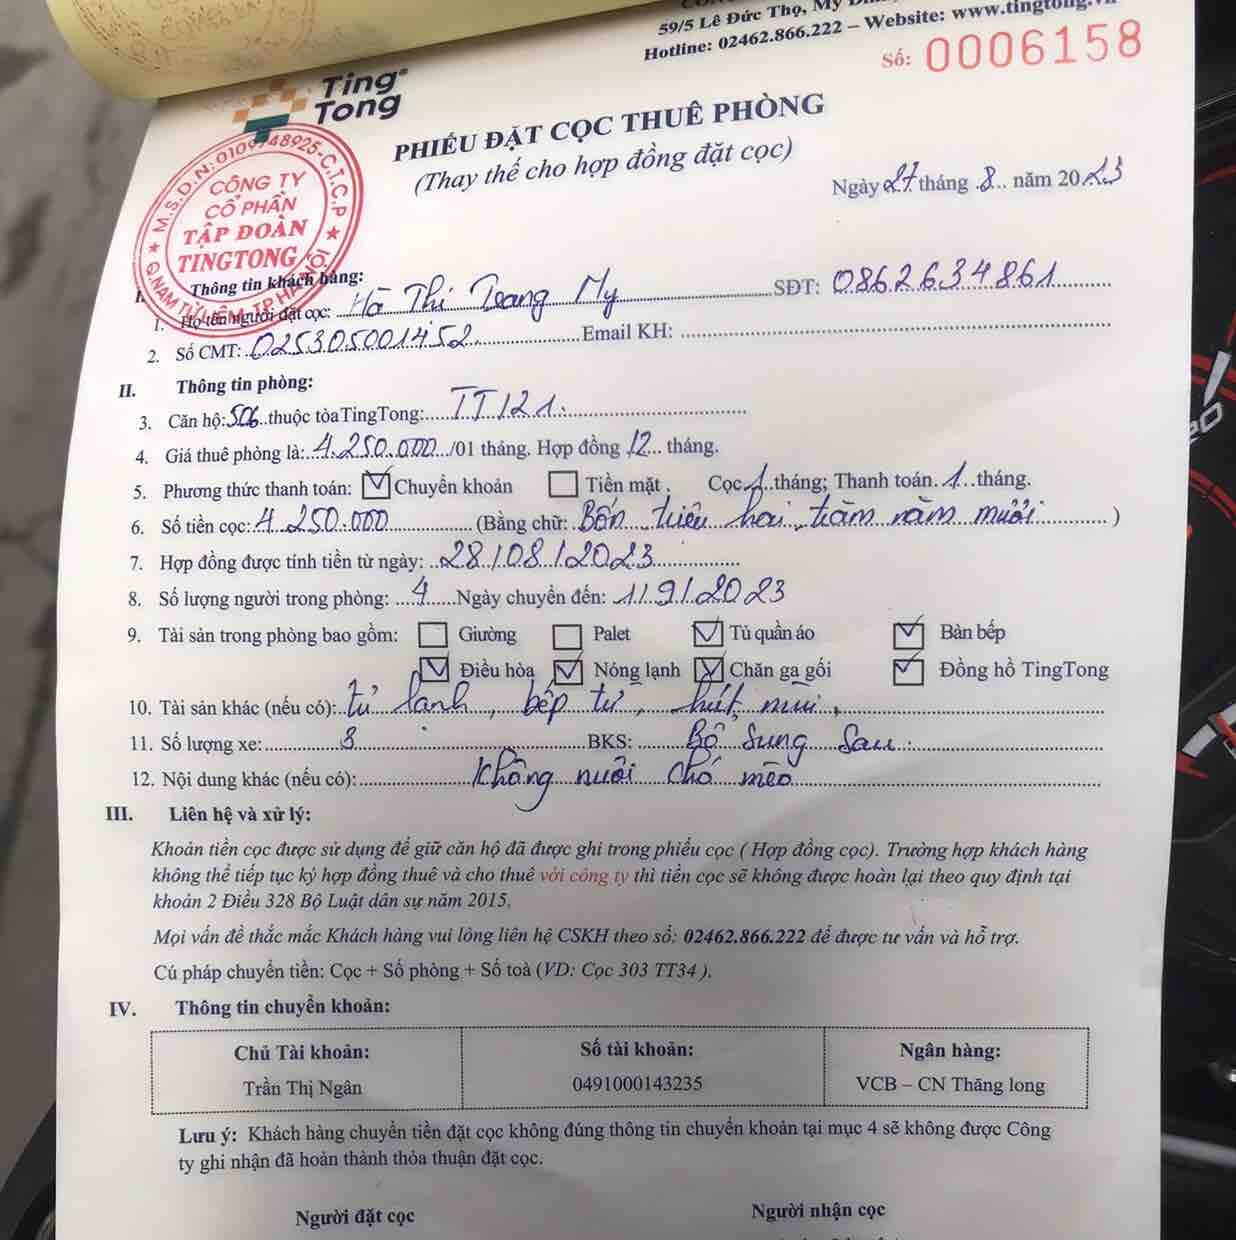 59/5 Lê Đức Thọ, Mỹ
Hotline: 02462.866.222 – Website: www.tingtong.vn
Số: 0006158
Ting
Tong
M.S.D.N: 0109748925-C.T.C.P
CÔNG TY
CỔ PHẦN
TẬP ĐOÀN
TINGTONG
Q.NAM TỪ LIÊM, TP HÀ NỘI
PHIẾU ĐẶT CỌC THUÊ PHÒNG
(Thay thế cho hợp đồng đặt cọc)
Ngày 27 tháng 8 năm 2023
I. Thông tin khách hàng:
1. Họ tên người đặt cọc: Hà Thị Trang My SĐT: 0862634861
2. Số CMT: 025305001452 Email KH:
II. Thông tin phòng:
3. Căn hộ: 506 thuộc tòa TingTong: TT121
4. Giá thuê phòng là: 4.250.000/01 tháng. Hợp đồng 12 tháng.
5. Phương thức thanh toán: Chuyển khoản Tiền mặt. Cọc 1 tháng; Thanh toán 1 tháng.
6. Số tiền cọc: 4 250.000 (Bằng chữ: Bốn triệu hai trăm năm mươi)
7. Hợp đồng được tính tiền từ ngày: 28/08/2023
8. Số lượng người trong phòng: 4 Ngày chuyển đến: 1/9/2023
9. Tài sản trong phòng bao gồm: Giường Palet Tủ quần áo Bàn bếp
Điều hòa Nóng lạnh Chăn ga gối Đồng hồ TingTong
10. Tài sản khác (nếu có): tủ lạnh, bếp từ, hút mùi,
11. Số lượng xe: 3 BKS: Bổ sung sau
12. Nội dung khác (nếu có): không nuôi chó mèo
III. Liên hệ và xử lý:
Khoản tiền cọc được sử dụng để giữ căn hộ đã được ghi trong phiếu cọc ( Hợp đồng cọc). Trường hợp khách hàng
không thể tiếp tục ký hợp đồng thuê và cho thuê với công ty thì tiền cọc sẽ không được hoàn lại theo quy định tại
khoản 2 Điều 328 Bộ Luật dân sự năm 2015.
Mọi vấn đề thắc mắc Khách hàng vui lòng liên hệ CSKH theo số: 02462.866.222 để được tư vấn và hỗ trợ.
Cú pháp chuyển tiền: Cọc + Số phòng + Số toà (VD: Cọc 303 TT34 ).
IV. Thông tin chuyển khoản:
Chủ Tài khoản: Số tài khoản: Ngân hàng:
Trần Thị Ngân 0491000143235 VCB – CN Thăng long
Lưu ý: Khách hàng chuyển tiền đặt cọc không đúng thông tin chuyển khoản tại mục 4 sẽ không được Công
ty ghi nhận đã hoàn thành thỏa thuận đặt cọc.
Người đặt cọc Người nhận cọc